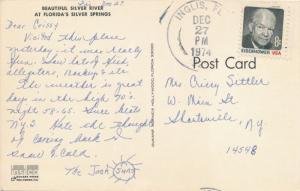 BEAUTIFUL SILVER RIVER
AT FLORIDA'S SILVER SPRINGS
Dec 27
Dear Crissy
Visited this place
yesterday, it was really
neat. Saw lots of fish,
alligators, &
The weather is great
days in the high 70's
night 58-65. Sure beats
NY's Hate the thought
of coming back to
snow & cold.
The Josh
INGLIS, FL
DEC
27
PM
1974
EISENHOWER USA
Post Card
Mrs
W. Main St
Shortsville,
N.Y
14548